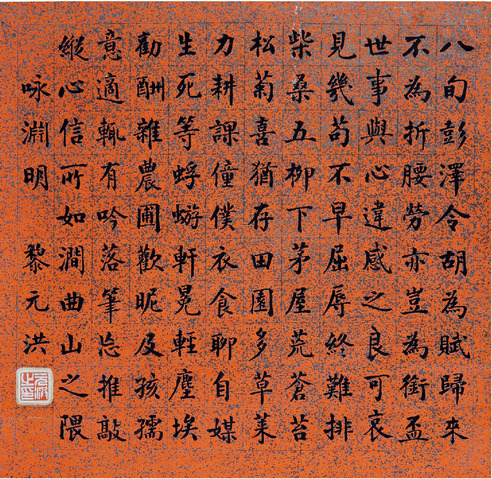 八旬彭澤令胡為賦歸來
不為折腰勞亦豈為銜盃
世事與心違感之良可哀
見幾苟不早屈辱終難排
柴桑五柳下茅屋荒蒼苔
松菊喜猶存田園多草萊
力耕課僮僕衣食聊自媒
生死等蜉蝣軒冕輕塵埃
勸酬雜農圃歡昵及孩孺
意適輒有吟落筆忘推敲
縱心信所如澗曲山之隈
咏淵明 黎元洪